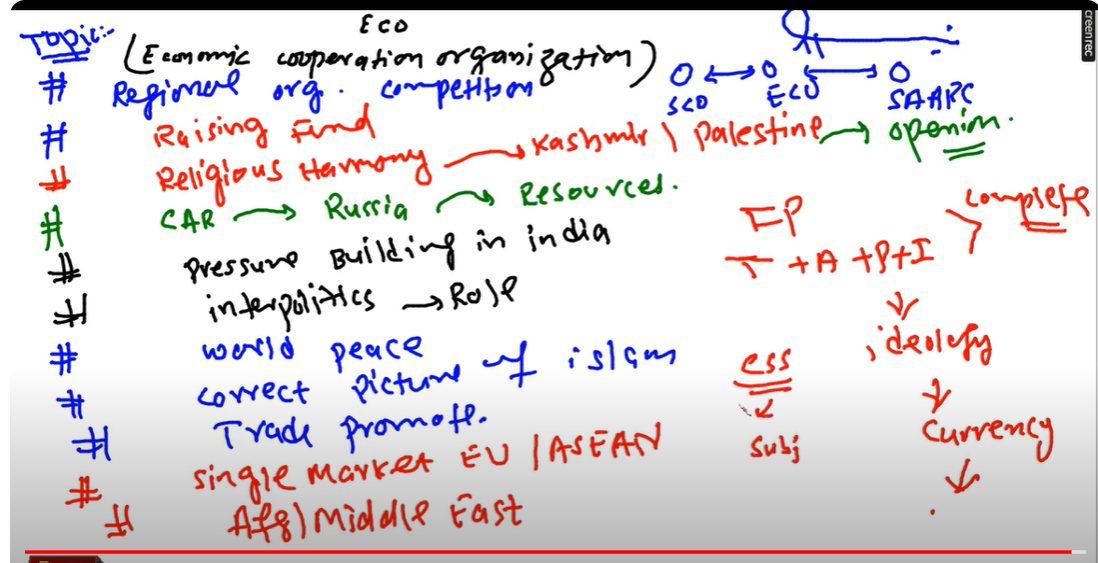 ECO
Topic:-
(Economic cooperation organization)
# Regional org. competition
SCO ↔ ECO ↔ SAARC
# Raising Fund
# Religious Harmony → Kashmir \ Palestine → openion.
# CAR → Russia → Resources.
# Pressure Building in india
# interpolitics → Role
# world peace
# correct picture of islam
# Trade promote.
# single Market EU / ASEAN
# Afg) Middle East
complete
+ A + P + I
ideology
currency
ess
subj
creenrec